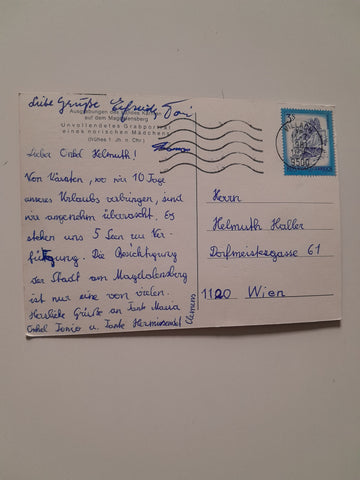 Liebe Grüße Elfriede
Ausgrabungen des Landes Kärnten
auf dem Magdalensberg
Unvollendetes Grabporträt
eines norischen Mädchens
(frühes 1. Jh. n. Chr.)
Lieber Onkel Helmuth!
Von Kärnten, wo wir 10 Tage
unseres Urlaubs verbringen, sind
wir angenehm überrascht. Es
stehen uns 5 Seen zur Ver-
fügung. Die Besichtigung
der Stadt am Magdalensberg
ist nur eine von vielen.
Herzliche Grüße an Tante Maria
Onkel Tonio u. Tante Hermine und
Clemens
S3
VILLACH
9500
Herrn
Helmuth Haller
Dorfmeistergasse 61
1120 Wien